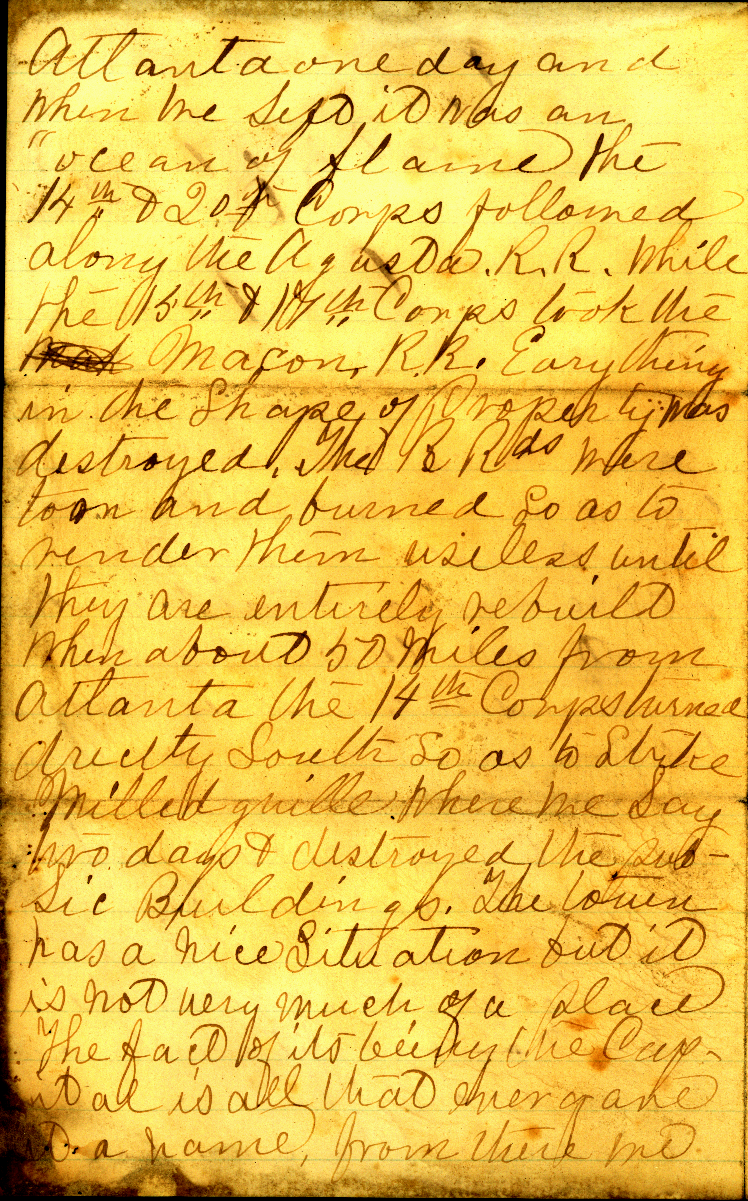 Atlanta one day and
when we left it was an
"ocean of flame" the
14th & 20th Corps followed
along the Agusta. R. R. while
the 15th & 17th Corps took the
Macon, R. R. Earything
in the Shape of Property was
destroyed. The R Rds were
toon and burned So as to
render them useless until
they are entirely rebuilt
When about 50 Miles from
Atlanta the 14th Corps turned
direcltly South So as to Strike
Milledgville where we Lay
two days & destroyed the pub-
lic Buildings. The town
has a nice Situation but it
is not very much of a place
The fact of its being the Cap-
ital is all that ever gave
it a name, from there we